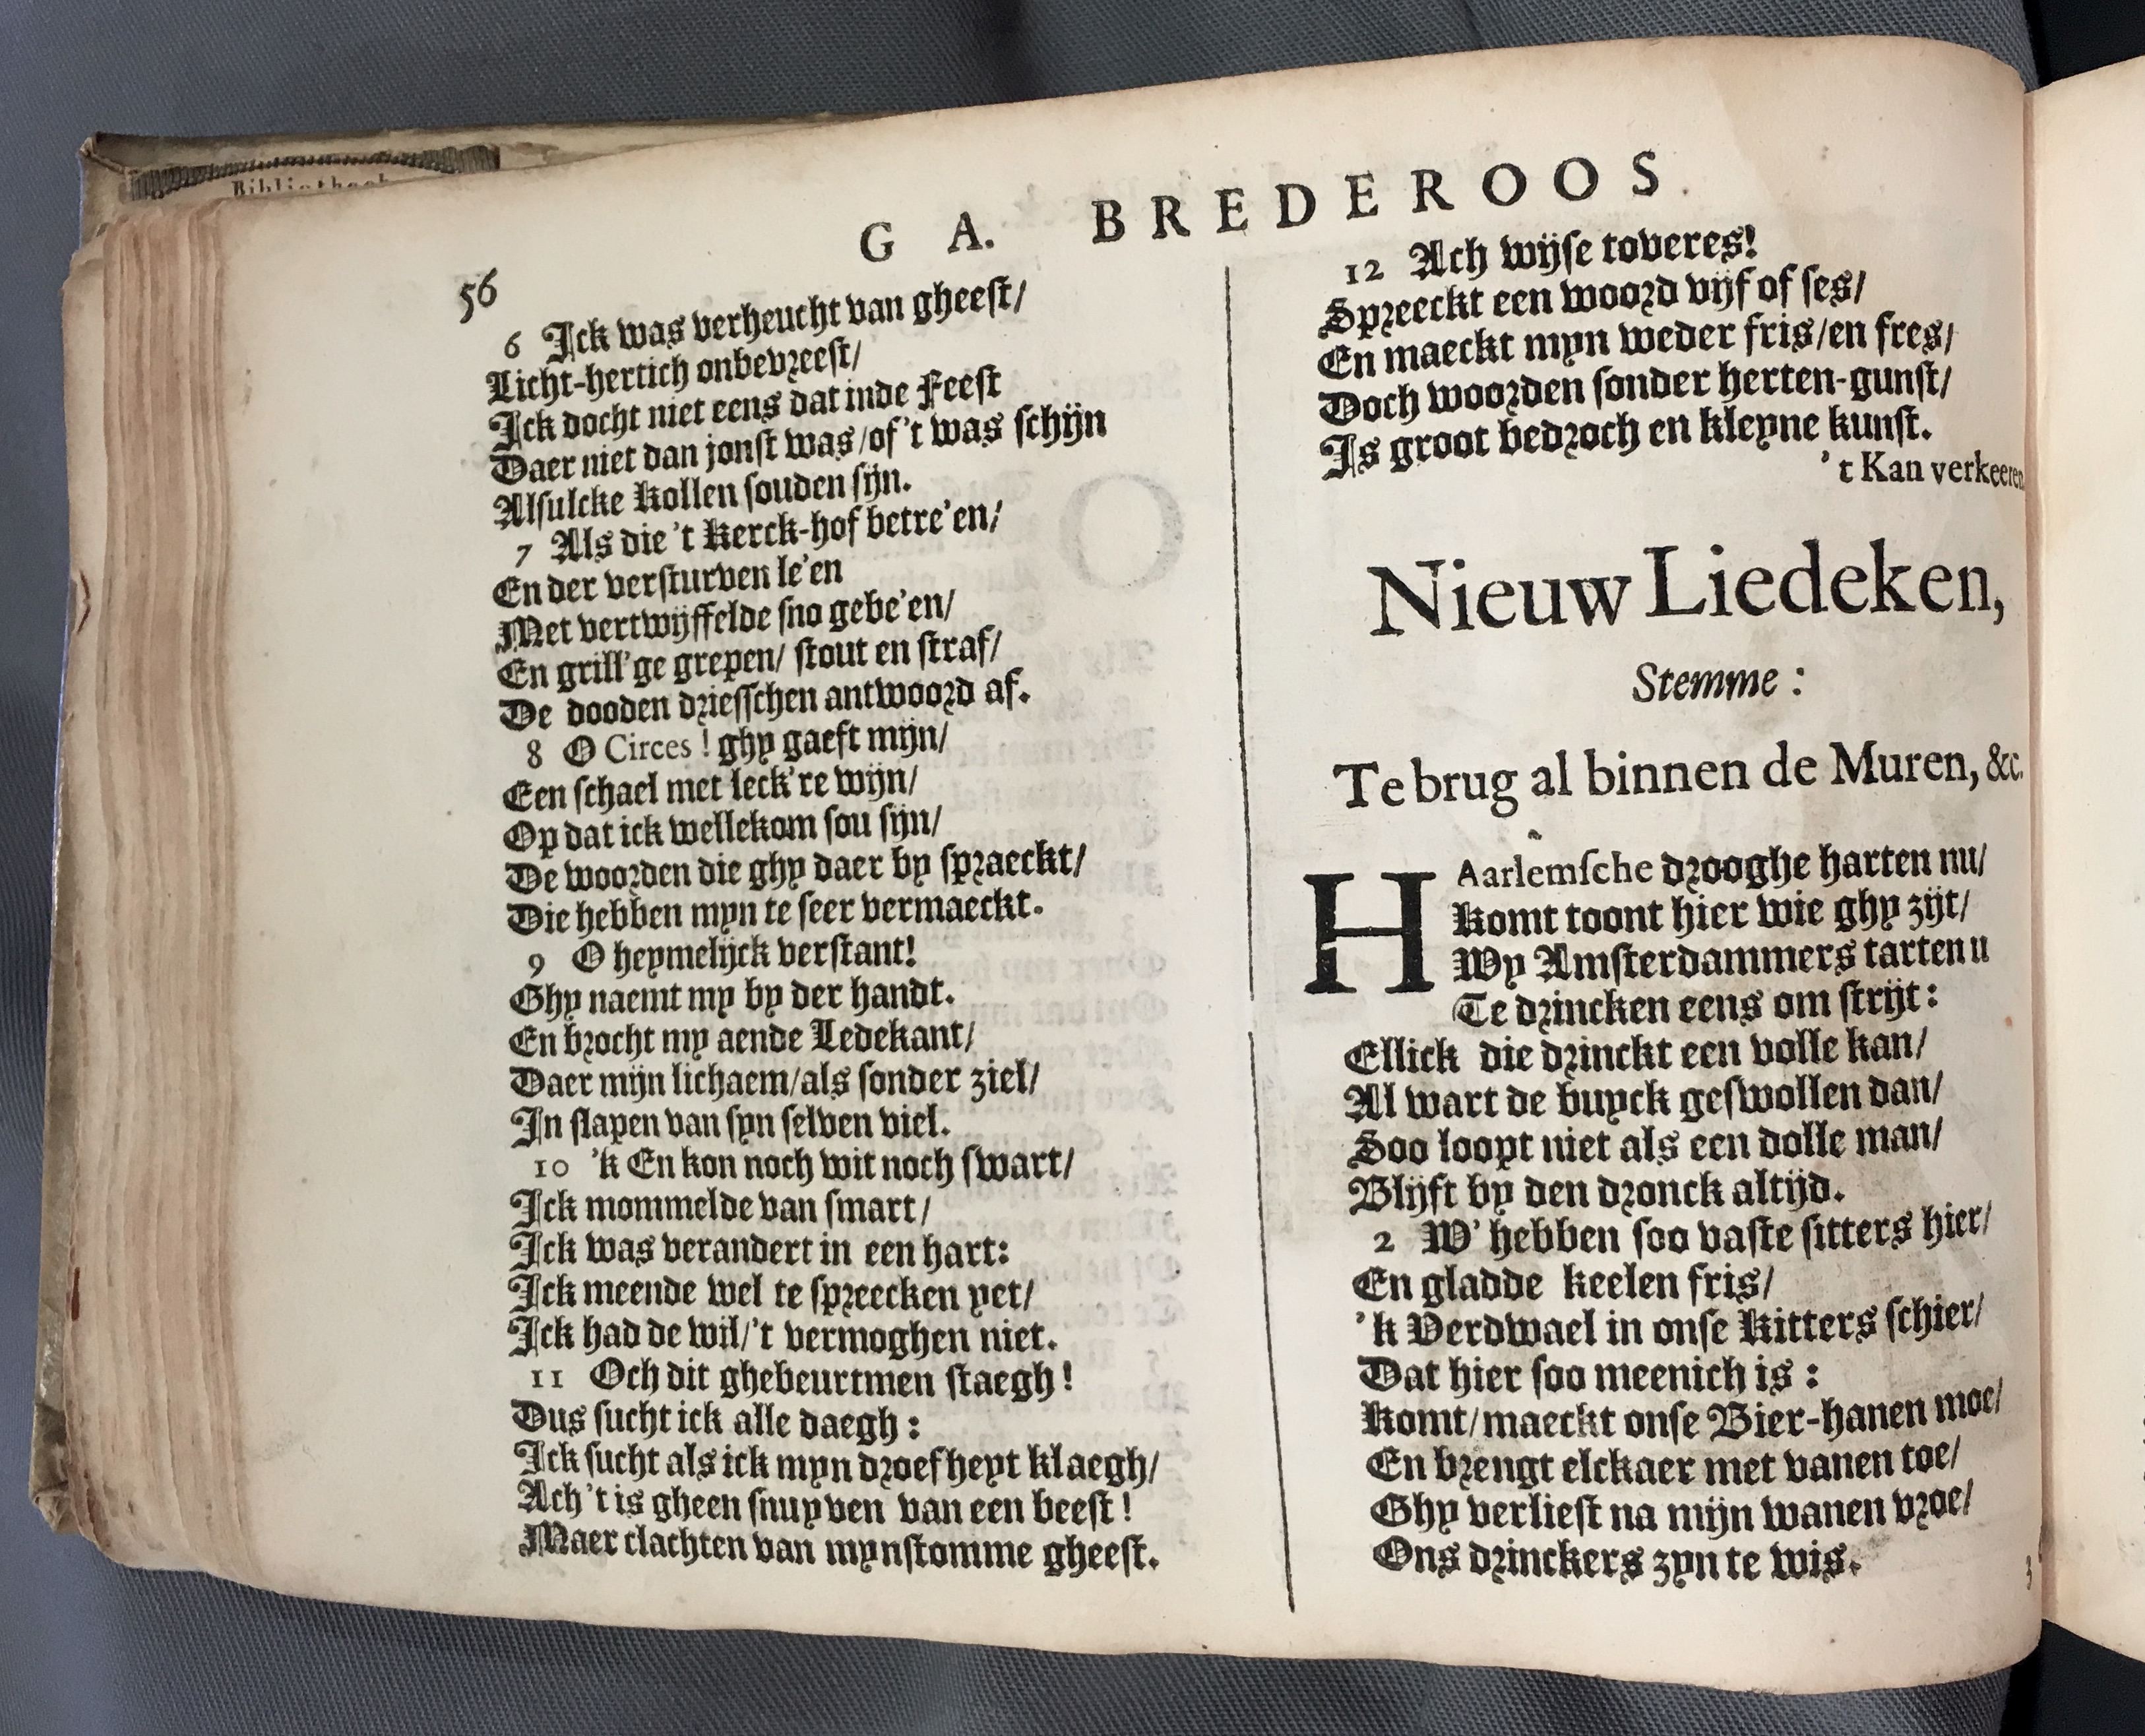 Bibliotheek
G A. BREDEROOS
56
6 Ick was verheucht van gheest/
Licht-hertich onbevreest/
Ick docht niet eens dat inde Feest
Daer niet dan jonst was/of 't was schijn
Alsulcke Kollen souden sijn.
7 Als die 't Kerck-hof betre'en/
En der versturven le'en
Met vertwijffelde sno gebe'en/
En grill'ge grepen/ stout en straf/
De dooden driesschen antwoord af.
8 O Circes! ghy gaeft mijn/
Een schael met leck're wijn/
Op dat ick wellekom sou sijn/
De woorden die ghy daer by spraeckt/
Die hebben myn te seer vermaeckt.
9 O heymelijck verstant!
Ghy naemt my by der handt.
En brocht my aende Ledekant/
Daer mijn lichaem/als sonder ziel/
In slapen van syn selven viel.
10 'k En kon noch wit noch swart/
Ick mommelde van smart/
Ick was verandert in een hart:
Ick meende wel te spreecken yet/
Ick had de wil/'t vermoghen niet.
11 Och dit ghebeurtmen staegh!
Dus sucht ick alle daegh:
Ick sucht als ick myn droefheyt klaegh/
Ach 't is gheen snuyven van een beest!
Maer clachten van myn stomme gheest.
12 Ach wijse toveres!
Spreeckt een woord vijf of ses/
En maeckt myn weder fris/en fres/
Doch woorden sonder herten-gunst/
Is groot bedroch en kleyne kunst.
't Kan verkeeren.
Nieuw Liedeken,
Stemme:
Te brug al binnen de Muren, &c.
HAarlemsche drooghe harten nu/
Komt toont hier wie ghy zijt/
Wy Amsterdammers tarten u
Te drincken eens om strijt:
Ellick die drinckt een volle kan/
Al wart de buyck geswollen dan/
Soo loopt niet als een dolle man/
Blijft by den dronck altijd.
2 W' hebben soo vaste sitters hier/
En gladde keelen fris/
'k Verdwael in onse Kitters schier/
Dat hier soo meenich is:
Komt/maeckt onse Bier-hanen moe/
En brengt elckaer met vanen toe/
Ghy verliest na mijn wanen vroe/
Ons drinckers zyn te wis.
3